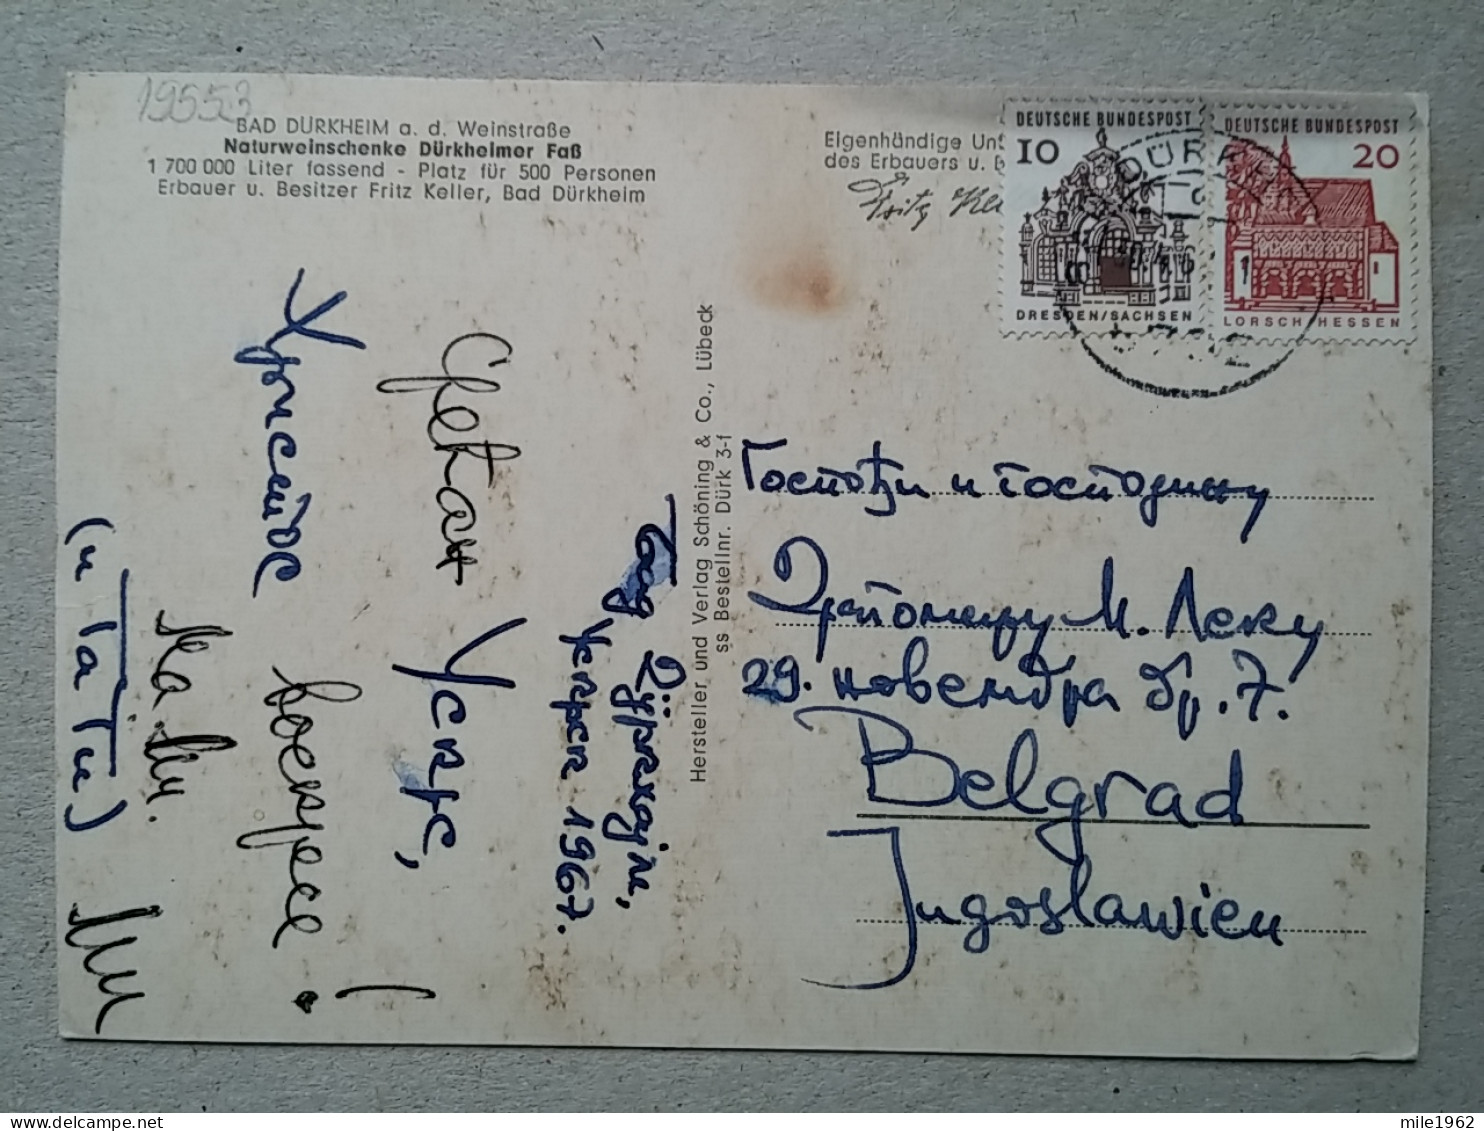 19553
BAD DÜRKHEIM a. d. Weinstraße
Naturweinschenke Dürkheimer Faß
1 700 000 Liter fassend - Platz für 500 Personen
Erbauer u. Besitzer Fritz Keller, Bad Dürkheim
Eigenhändige Unt
des Erbauers u. B
Fritz Ke
DEUTSCHE BUNDESPOST
10
DRESDEN/SACHSEN
DEUTSCHE BUNDESPOST
20
LORSCH/HESSEN
Hersteller und Verlag Schöning & Co., Lübeck
ss Bestellnr. Dürk 3-f
Бад
Ускрс 1967.
Срећан Ускрс,
Христос воскресе!
(и Та Ти)
Госпођи и господину
М. Леку
29. новембра бр. 7.
Belgrad
Jugoslawien
mile1962